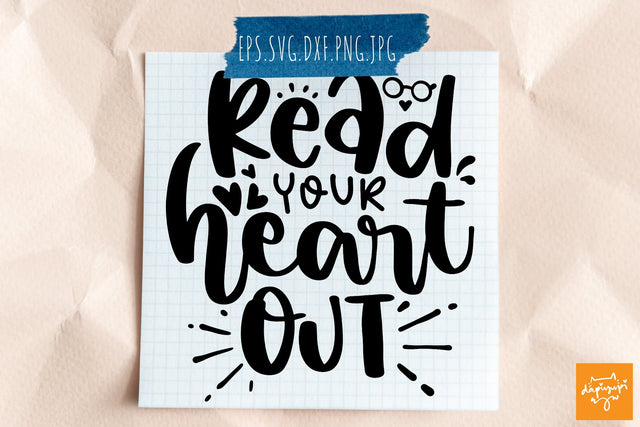 EPS.SVG.DXF.PNG.JPG
Read
YOUR
heart
OUT
dapiyupi